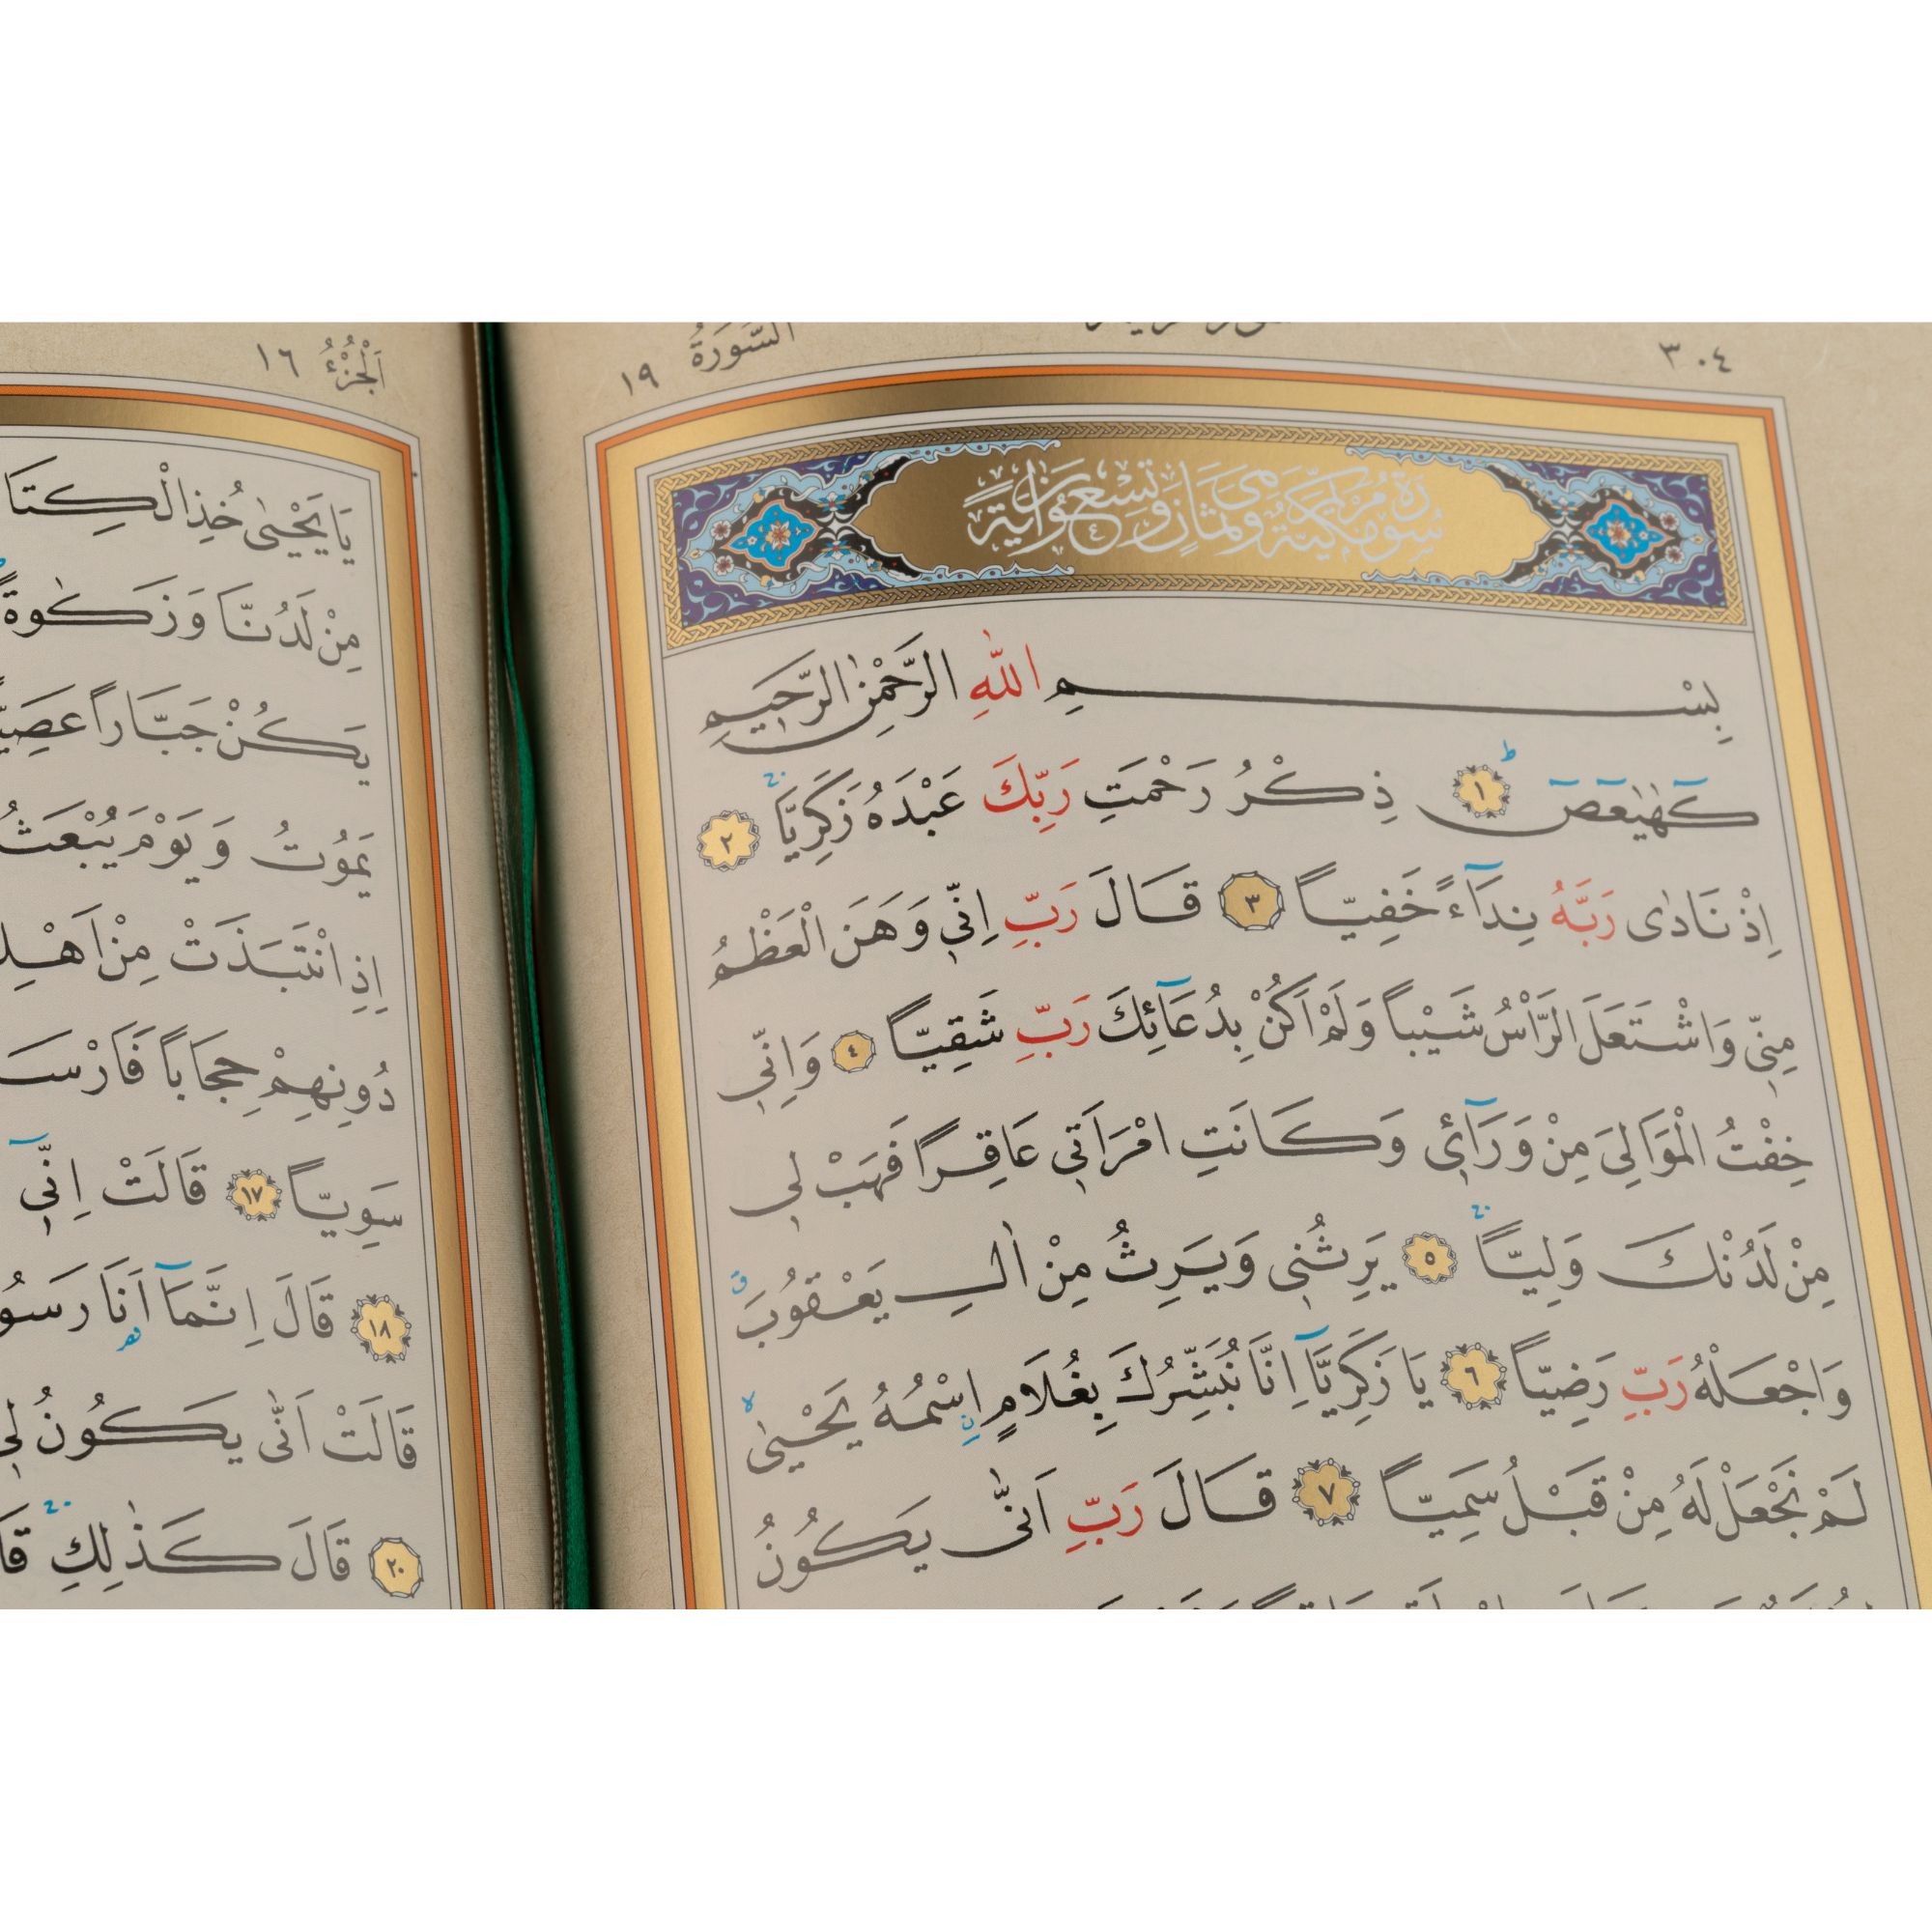 ٣٠٤
السورة ١٩
سُورَةُ مَرْيَمَ مَكِّيَّةٌ وَهِيَ ثَمَانٍ وَتِسْعُونَ اٰيَةً
بِسْمِ اللّٰهِ الرَّحْمٰنِ الرَّحِيمِ
كٓهٰيٰعٓصٓ ط ١ ذِكْرُ رَحْمَتِ رَبِّكَ عَبْدَهُ زَكَرِيَّا ٢
اِذْ نَادٰى رَبَّهُ نِدَٓاءً خَفِيّاً ٣ قَالَ رَبِّ اِنّ۪ي وَهَنَ الْعَظْمُ
مِنّ۪ي وَاشْتَعَلَ الرَّأْسُ شَيْباً وَلَمْ اَكُنْ بِدُعَٓائِكَ رَبِّ شَقِيّاً ٤ وَاِنّ۪ي
خِفْتُ الْمَوَالِيَ مِنْ وَرَٓائ۪ي وَكَانَتِ امْرَاَت۪ي عَاقِراً فَهَبْ ل۪ي
مِنْ لَدُنْكَ وَلِيّاً ٥ يَرِثُن۪ي وَيَرِثُ مِنْ اٰلِ يَعْقُوبَ ق
وَاجْعَلْهُ رَبِّ رَضِيّاً ٦ يَا زَكَرِيَّٓا اِنَّا نُبَشِّرُكَ بِغُلَامٍ اِسْمُهُ يَحْيٰى لا
لَمْ نَجْعَلْ لَهُ مِنْ قَبْلُ سَمِيّاً ٧ قَالَ رَبِّ اَنّٰى يَكُونُ
اَلْجُزْءُ ١٦
يَا يَحْيٰى خُذِ الْكِتَا
مِنْ لَدُنَّا وَزَكٰوةً
يَكُنْ جَبَّاراً عَصِيّ
يَمُوتُ وَيَوْمَ يُبْعَثُ
اِذِ انْتَبَذَتْ مِنْ اَهْلِ
دُونِهِمْ حِجَاباً فَاَرْسَ
سَوِيّاً ١٧ قَالَتْ اِنّ۪ٓي
١٨ قَالَ اِنَّمَٓا اَنَا رَسُو
قَالَتْ اَنّٰى يَكُونُ ل۪ي
٢٠ قَالَ كَذٰلِكِ قَا